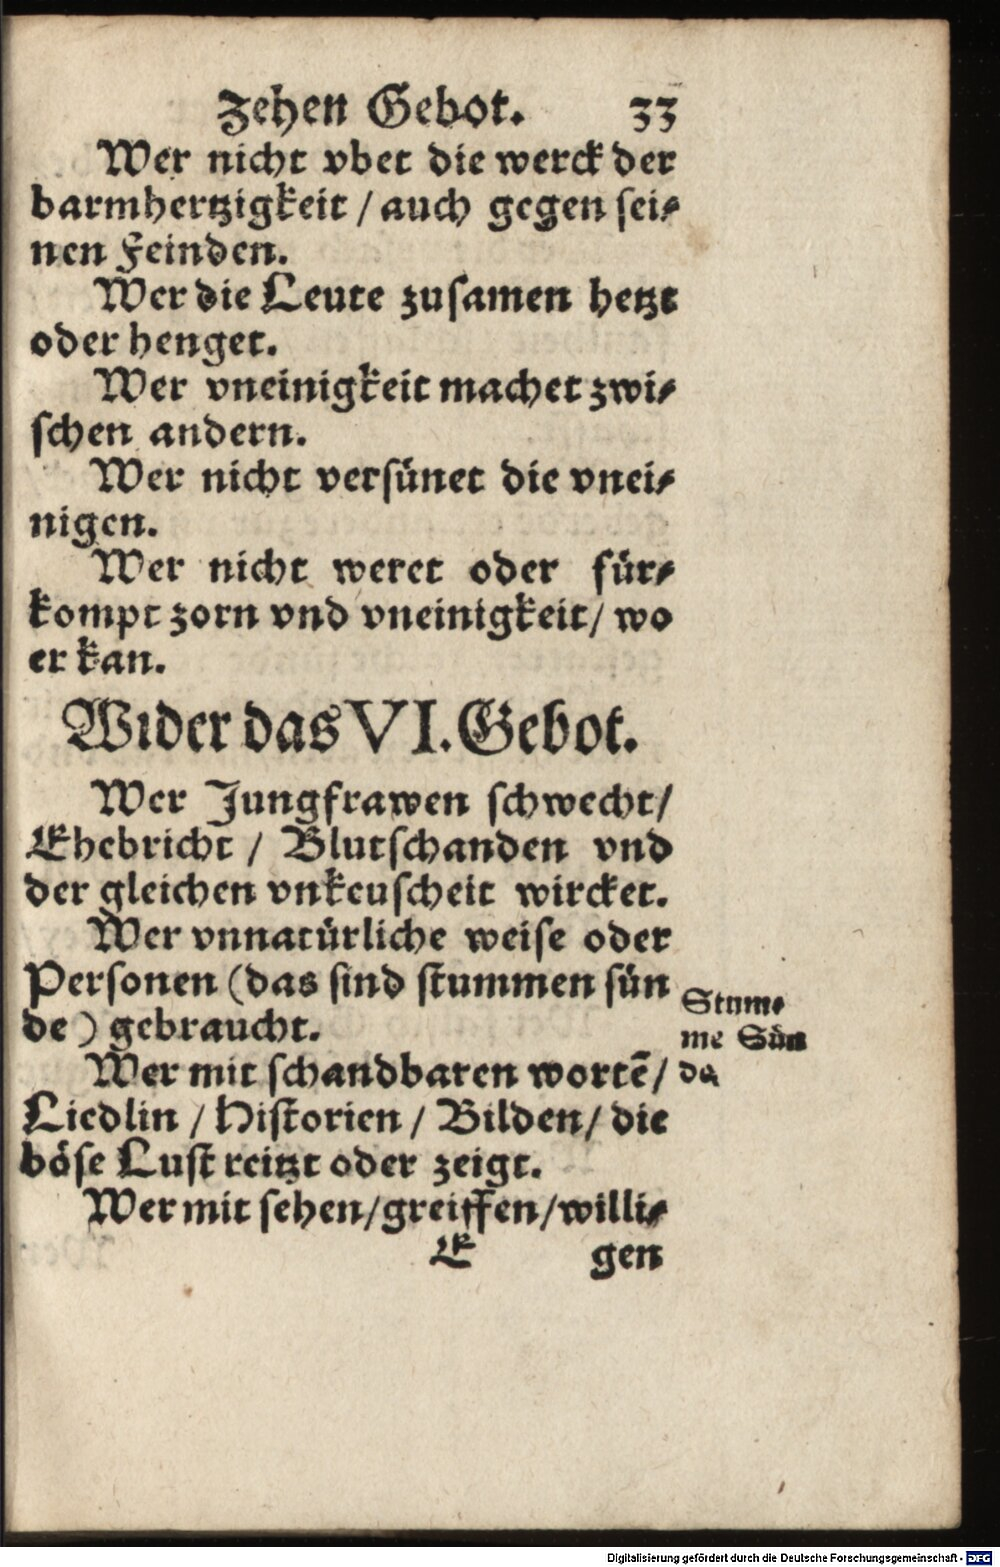 Zehen Gebot. 33
Wer nicht vbet die werck der
barmhertzigkeit / auch gegen sei⸗
nen Feinden.
Wer die Leute zusamen hetzt
oder henget.
Wer vneinigkeit machet zwi⸗
schen andern.
Wer nicht versünet die vnei⸗
nigen.
Wer nicht weret oder für⸗
kompt zorn vnd vneinigkeit / wo
er kan.
Wider das VI. Gebot.
Wer Jungfrawen schwecht /
Ehebricht / Blutschanden vnd
der gleichen vnkeuscheit wircket.
Wer vnnatürliche weise oder
Personen (das sind stummen sün
de) gebraucht.
Stum⸗
me Sün
da
Wer mit schandbaren wortē /
Liedlin / Historien / Bilden / die
böse Lust reitzt oder zeigt.
Wer mit sehen / greiffen / willi⸗
E gen
Digitalisierung gefördert durch die Deutsche Forschungsgemeinschaft - DFG